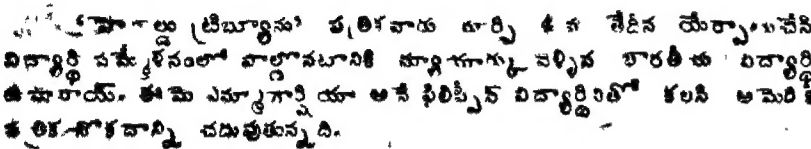 హెరాల్డు ట్రిబ్యూను' పత్రికవారు మార్చి 4 వ తేదీన యేర్పాటుచేసి
విద్యార్థి సమ్మేళనంలో పాల్గొనటానికి న్యూయార్కు వెళ్ళిన భారతీయ విద్యార్థి
ఉమారాయ్. ఈమె ఎమ్మాగార్షియా అనే ఫిలిప్పీన్ విద్యార్థినితో కలసి అమెరికే
పత్రికనొకదాన్ని చదువుతున్నది.